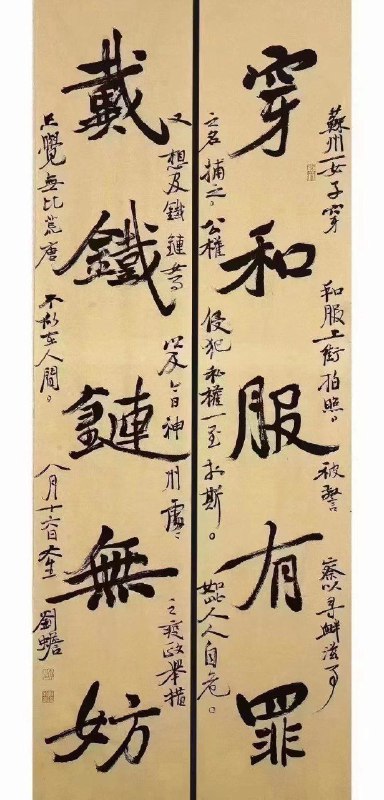 穿和服有罪
蘇州一女子穿和服上街拍照。被警察以尋衅滋事
之名捕之。公權侵犯私權一至於斯。如此人人自危。
戴鐵鏈無妨
又想及鐵鏈 以及今日神州處處之疫政舉措
只覺無比荒唐 不似在人間。八月十六日 劉蟾